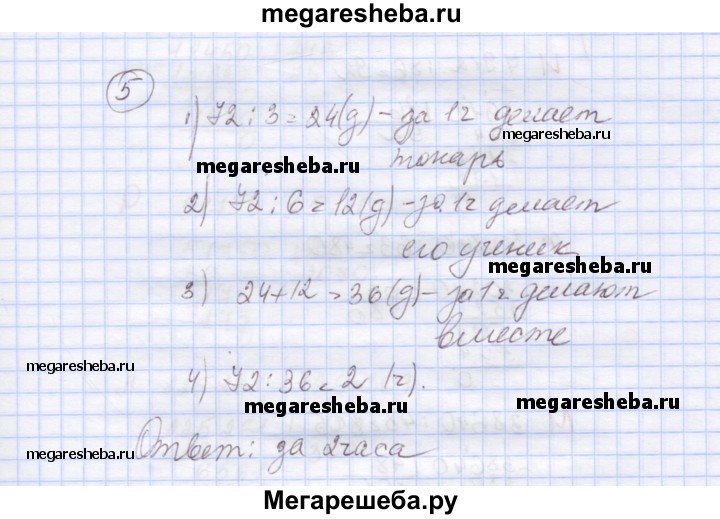 megaresheba.ru
5
1) 72 : 3 = 24(д) - за 1ч делает
megaresheba.ru
токарь
megaresheba.ru
2) 72 : 6 = 12(д) - за 1ч делает
его ученик
megaresheba.ru
3) 24+12 = 36(д) - за 1ч делают
вместе
megaresheba.ru
4) 72 : 36 = 2 (ч).
megaresheba.ru
megaresheba.ru
Ответ: за 2 часа
megaresheba.ru
Мегарешеба.ру